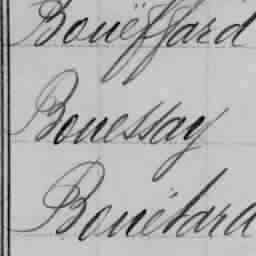 Bouëffard
Bouessay
Bouétard